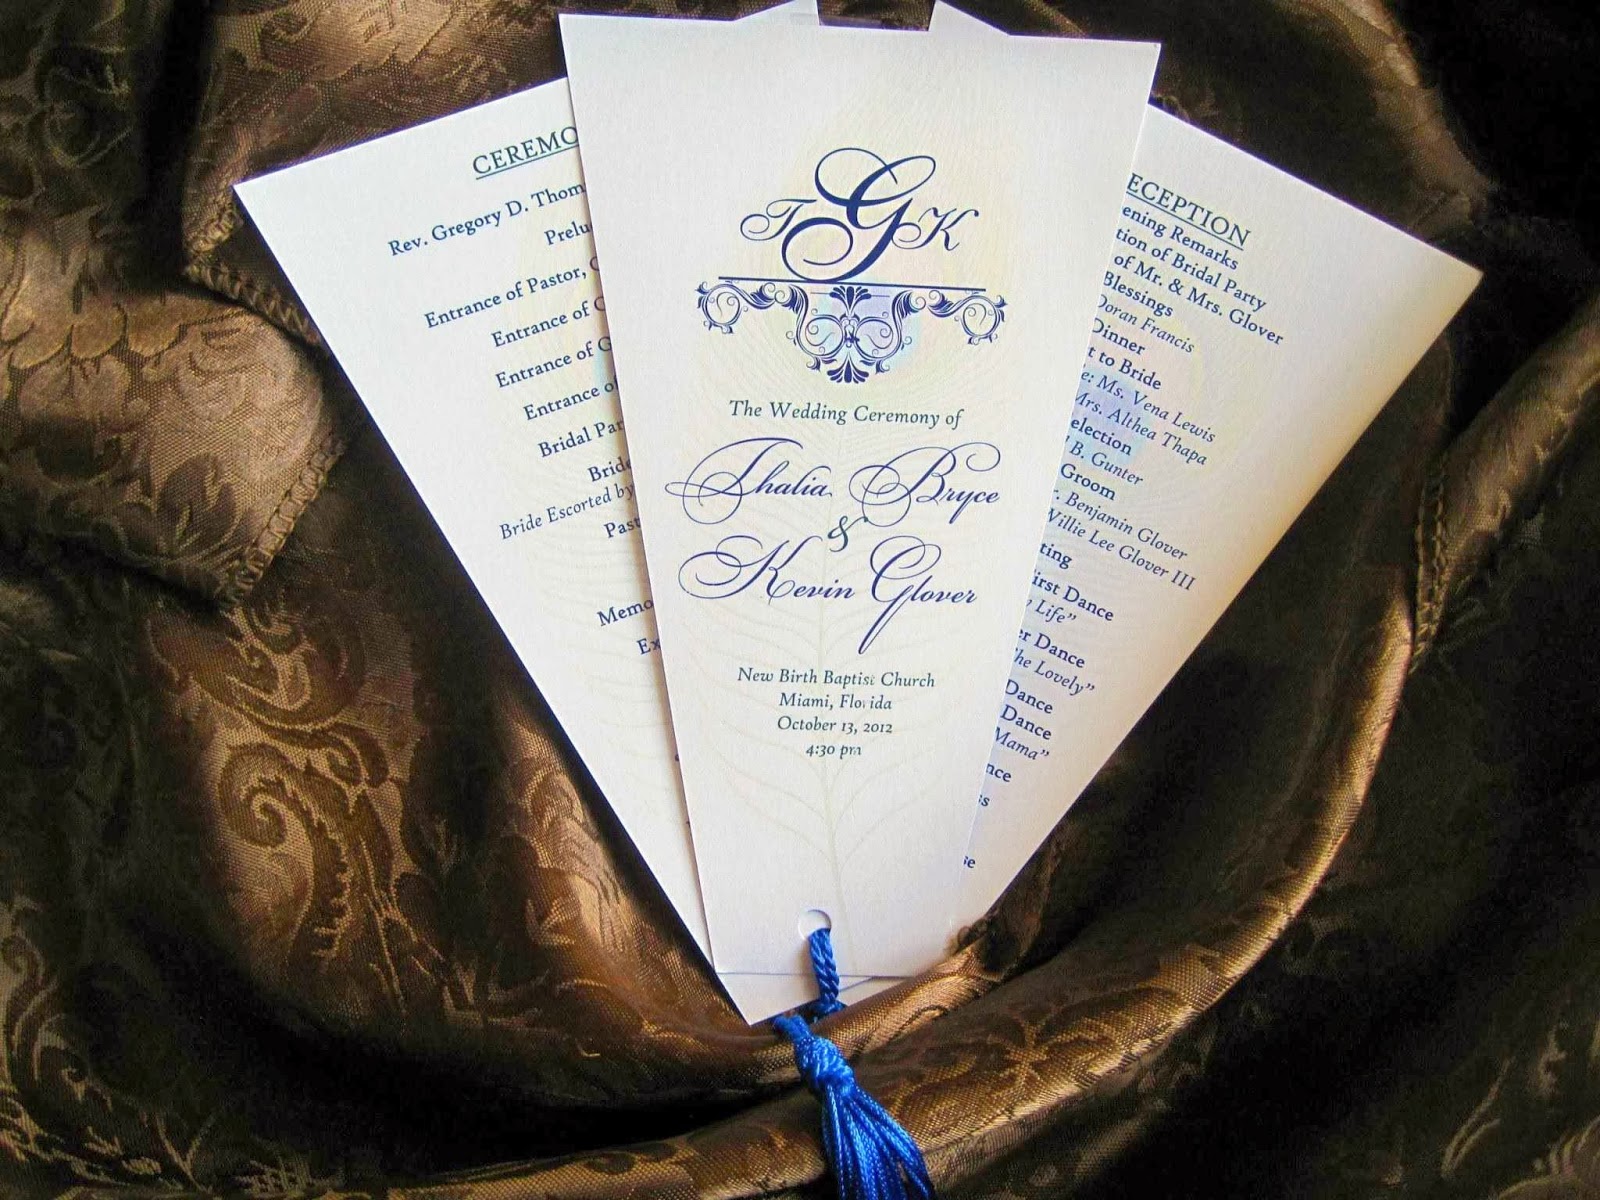 CEREMO
Rev. Gregory D. Thom
Prelu
Entrance of Pastor,
Entrance of
Entrance of G
Entrance of
Bridal Par
Bride
Bride Escorted by
Past
Memo
Ex
T G K
The Wedding Ceremony of
Thalia Bryce
&
Kevin Glover
New Birth Baptist Church
Miami, Florida
October 13, 2012
4:30 pm
ECEPTION
ening Remarks
tion of Bridal Party
of Mr. & Mrs. Glover
Blessings
Doran Francis
Dinner
t to Bride
e: Ms. Vena Lewis
Mrs. Althea Thapa
election
B. Gunter
Groom
. Benjamin Glover
Willie Lee Glover III
ting
irst Dance
Life"
er Dance
he Lovely"
Dance
Dance
Mama"
nce
s
se